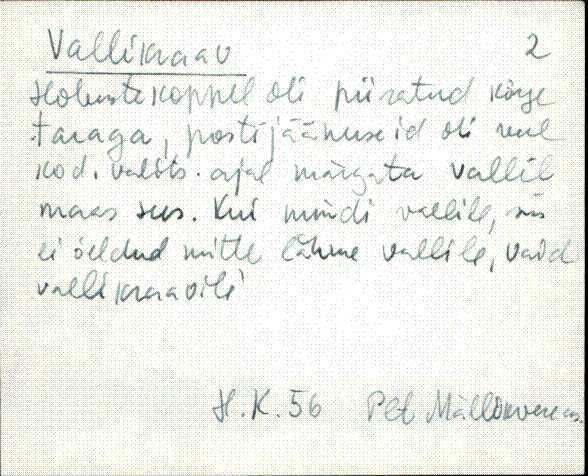 Vallikraav 2
Hobustekoppel oli piiratud kõrge
taraga, postijäänuseid oli veel
kod. valits. ajal märgata vallil
maas sees. Kui mindi vallile, siis
ei öeldud mitte lähme vallile, vaid
vallikraavile
H.K. 56 Pct